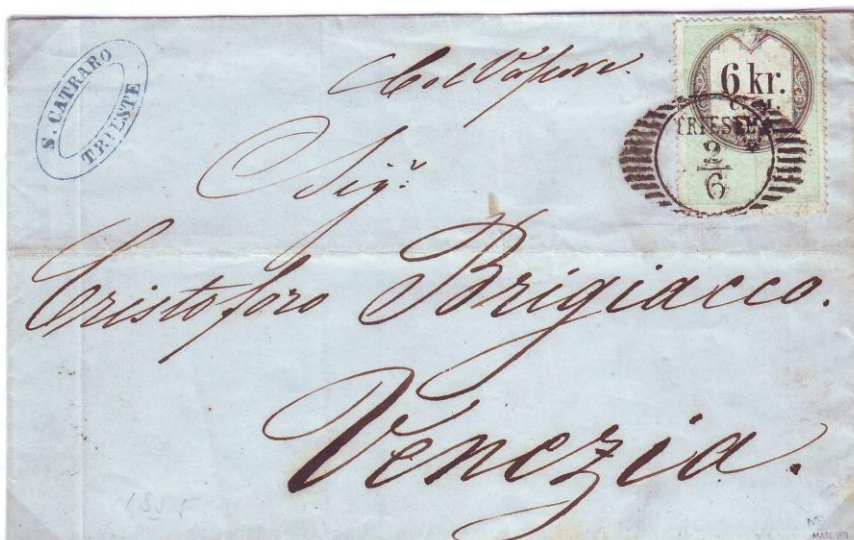 S. CATRARO
TRIESTE
Col Vapore.
6 kr.
C. M.
TRIESTE
2
6
Sigr.
Cristoforo Brigiacco.
Venezia.